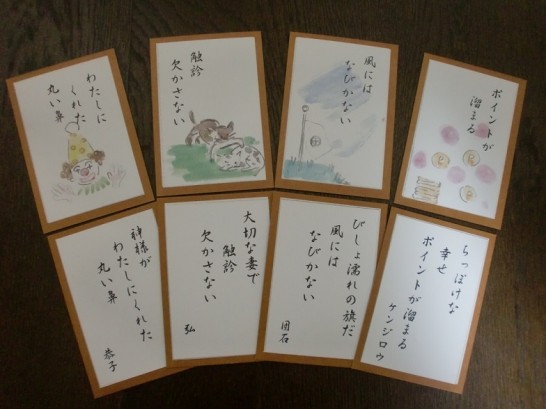 わたしに
くれた
丸い鼻
触診
欠かさない
風には
なびかない
ポイントが
溜まる
神様が
わたしにくれた
丸い鼻
恭子
大切な妻で
触診
欠かさない
弘
びしょ濡れの旗だ
風には
なびかない
団石
ちっぽけな
幸せ
ポイントが溜まる
ケンジロウ